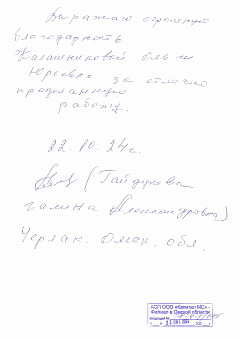 Выражаю огромную
благодарность
Калашниковой Ольге
Юрьевне за отлично
проделанную
работу.
22.10.24г.
(Гайдукова
Галина Александровна)
Черлак. Омск. обл.
АСП ООО «Капитал МС» -
Филиал в Омской области